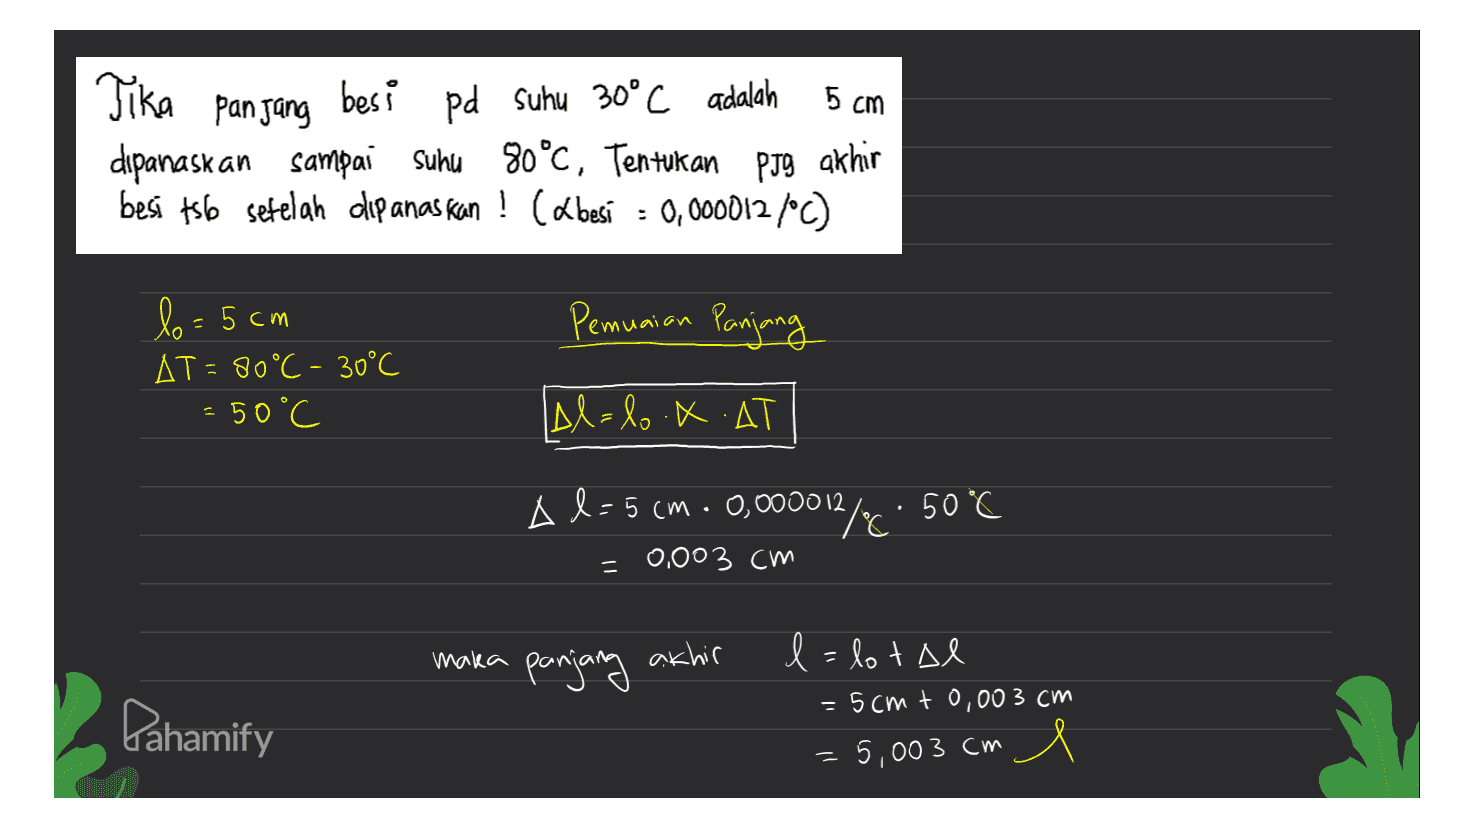 Jika panjang besi pd suhu 30°C adalah 5 cm
dipanaskan sampai suhu 80°C, Tentukan pjg akhir
besi tsb setelah dipanaskan ! (αbesi = 0,000012/°C)
l₀ = 5 cm
ΔT = 80°C - 30°C
= 50°C
Pemuaian Panjang
Δl = l₀ . α . ΔT
Δl = 5 cm . 0,000012/°C . 50°C
= 0,003 cm
maka panjang akhir l = l₀ + Δl
= 5 cm + 0,003 cm
= 5,003 cm
Pahamify